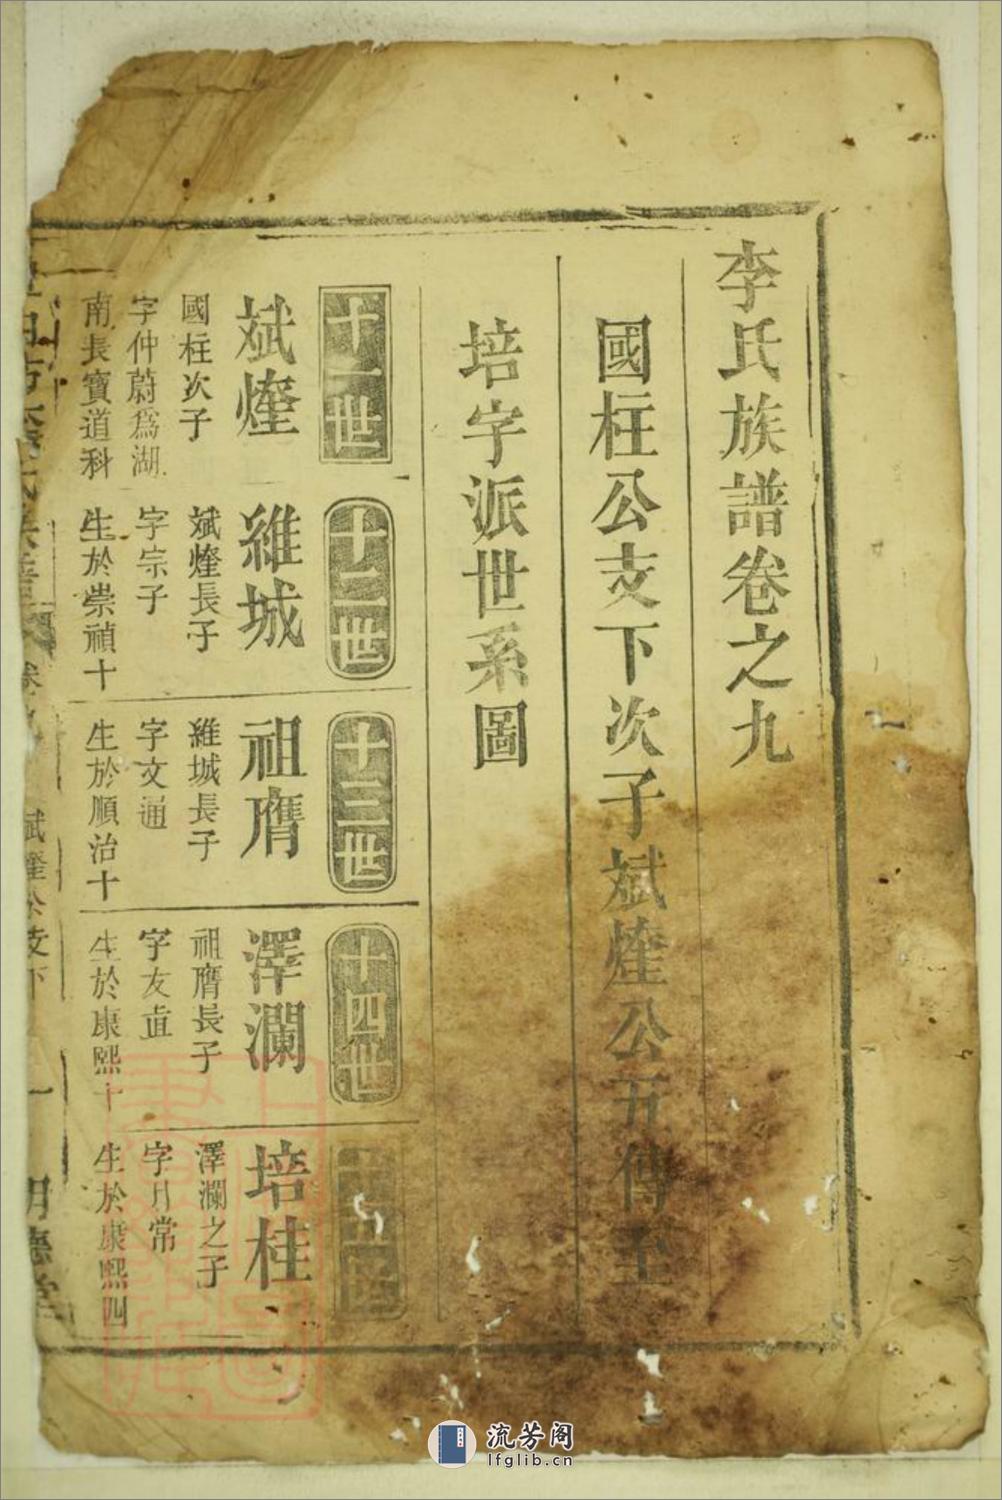 李氏族譜卷之九
國柱公支下次子斌煃公五傳至
培字派世系圖
十一世
斌煃
國柱次子
字仲蔚為湖
南長寶道科
十二世
維城
斌煃長子
字宗子
生於崇禎十
十三世
祖膺
維城長子
字文通
生於順治十
十四世
澤瀾
祖膺長子
字友直
生於康熙十
十五世
培桂
澤瀾之子
字月常
生於康熙四
卷九
斌煃公支下
一
明德堂
流芳阁
lfglib.cn